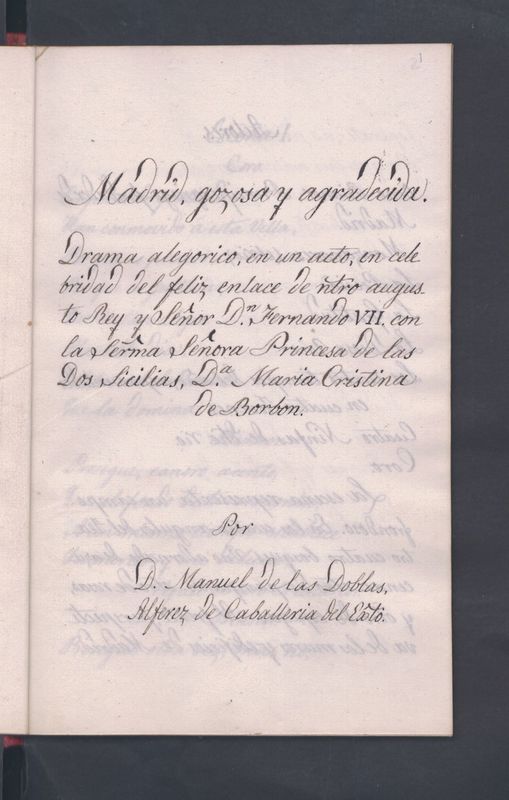 21
Madrid, gozosa y agradecida.
Drama alegorico, en un acto, en cele
bridad del feliz enlace de ñtro augus-
to Rey y Señor D.ⁿ Fernando VII. con
la Serm̃a Señora Princesa de las
Dos Sicilias, D.ª Maria Cristina
de Borbon.
Por
D. Manuel de las Doblas,
Alferez de Caballeria del Exto.